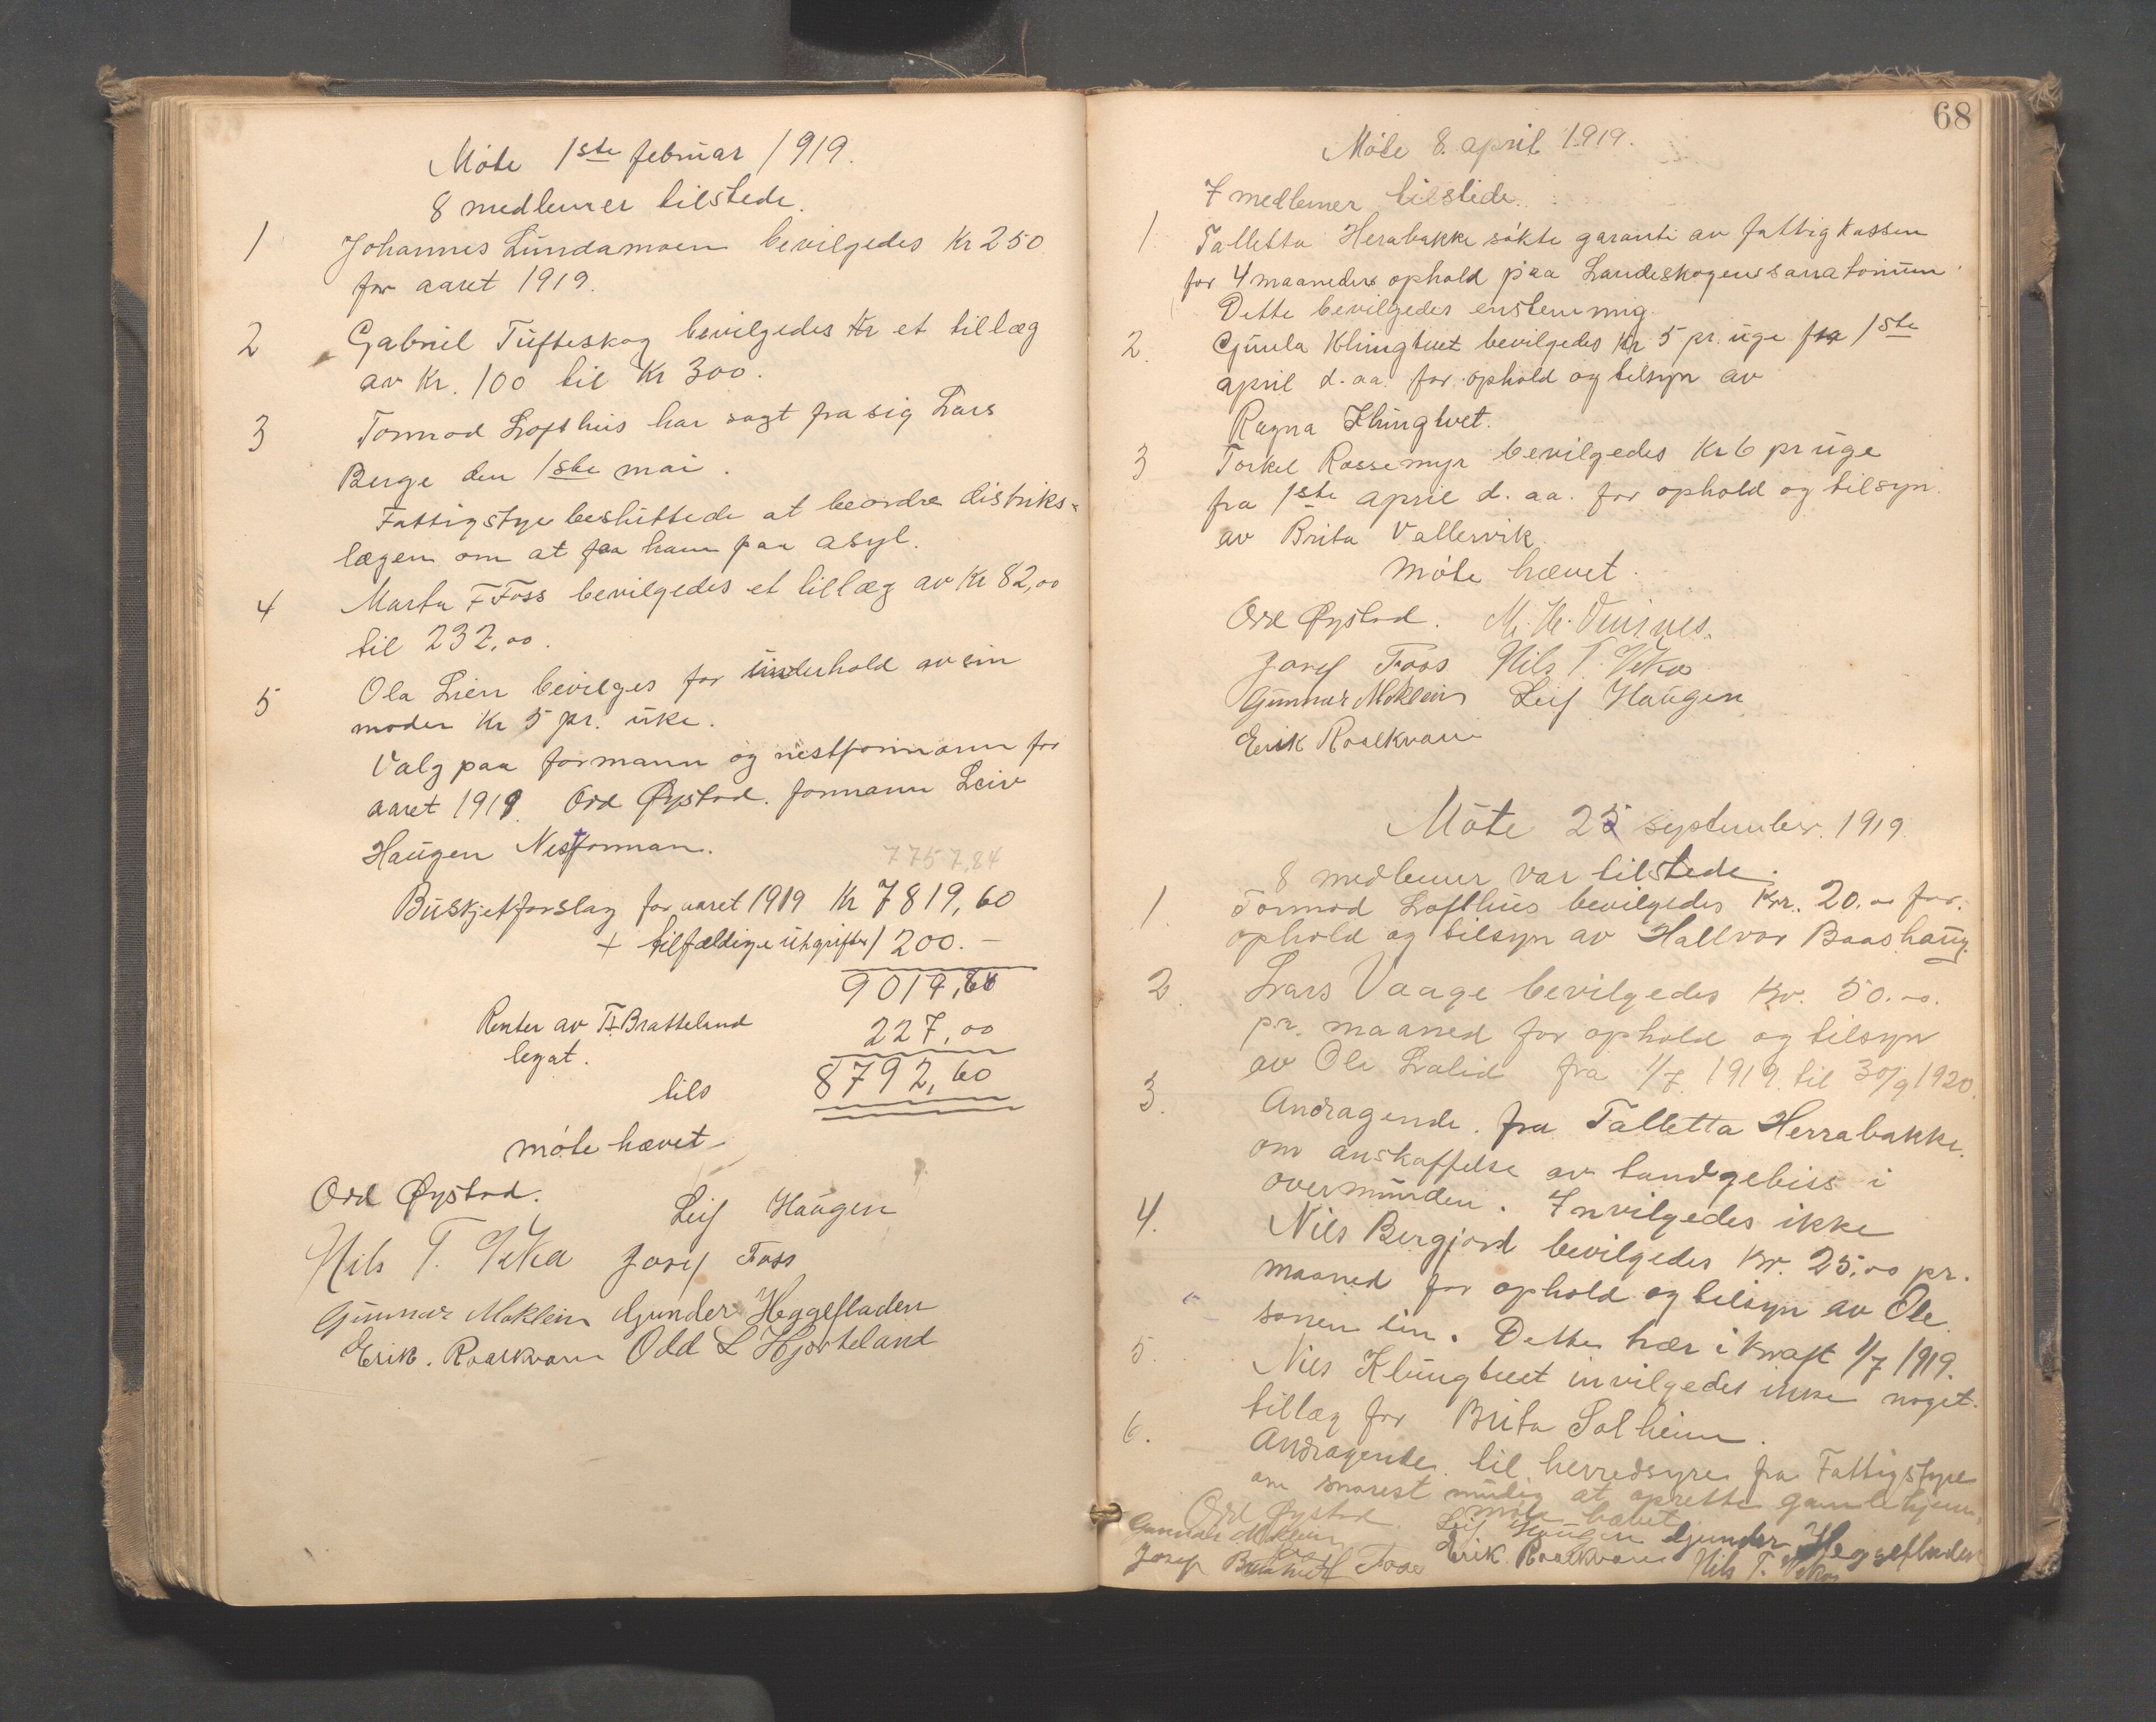 Møte 1ste februar 1919.
8 medlemer tilstede.
1 Johannes Lundamoen bevilgedes Kr 250
for aaret 1919.
2 Gabriel Tufteskog bevilgedes Kr et tillæg
av Kr. 100 til Kr 300.
3 Tormod Lofthus har sagt fra sig Lars
Berge den 1ste mai.
Fattigstye besluttede at beordre distriks-
lægen om at faa ham paa asyl.
4 Marta F Foss bevilgedes et tillæg av Kr 82,00
til 232,00.
5 Ola Lien bevilges for underhold av sin
moder Kr 5 pr. uke.
Valg paa formann og nestformann for
aaret 1919. Odd Øystad. formann Leiv
Haugen Nestforman.
7757,84
Buskjetforslag for aaret 1919 Kr 7819,60
+ tilfældige utgrifter 1200.-
9019,60
Renter av T. Bratteland 227,00
legat.
tils 8792,60
møte hævet
Odd Øystad. Leif Haugen
Nils T. Veka Josef Foss
Gunnar Moklein Gunder Heggefladen
Erik. Roalkvam Odd L Hjorteland
68
Møte 8. april 1919.
7 medlemer tilstede.
1 Talletta Herabakke søkte garanti av fattigkassen
for 4 maaneders ophold paa Landeskogens sanatorium.
Dette bevilgedes enstemmig.
2. Gjuula Klungtvet bevilgedes Kr 5 pr. uge fra 1ste
april d. aa. for ophold og tilsyn av
Ragna Klungtvet.
3 Torkel Rossemyr bevilgedes Kr 6 pr uge
fra 1ste april d. aa. for ophold og tilsyn.
av Brita Vallervik.
møte hævet.
Odd Øystad. M. H. Vinsnes.
Josef Foss Nils T. Veka
Gunnar Moklein Leif Haugen
Erik Roalkvam
Møte 25 september. 1919
8 medlemer var tilstede.
1. Tormod Lofthus bevilgedes Kr. 20.00 for.
ophold og tilsyn av Hallvor Baashaug.
2. Lars Vaage bevilgedes Kr. 50.00.
pr. maaned for ophold og tilsyn
av Ole Lalid fra 1/7 1919 til 30/9 1920.
3. Andragende. fra Talletta Herrabakke.
om anskaffelse av tandgebiss i
overmunden. Invilgedes ikke
4. Nils Bergjord bevilgedes Kr. 25,00 pr.
maaned for ophold og tilsyn av Ole
sonen sin. Dette trær i kraft 1/7 1919.
5. Nils Klungtvet invilgedes ikke noget.
tillæg for Brita Solheim.
6. Andragende. til herredsyre fra Fattigstyre
om snarest mulig at oprette gamlehjem,
møte hævet
Odd Øystad. Leif Haugen Gunder Heggefladen
Gunnar Moklein Erik Roalkvam Nils T. Veka
Josef Foss